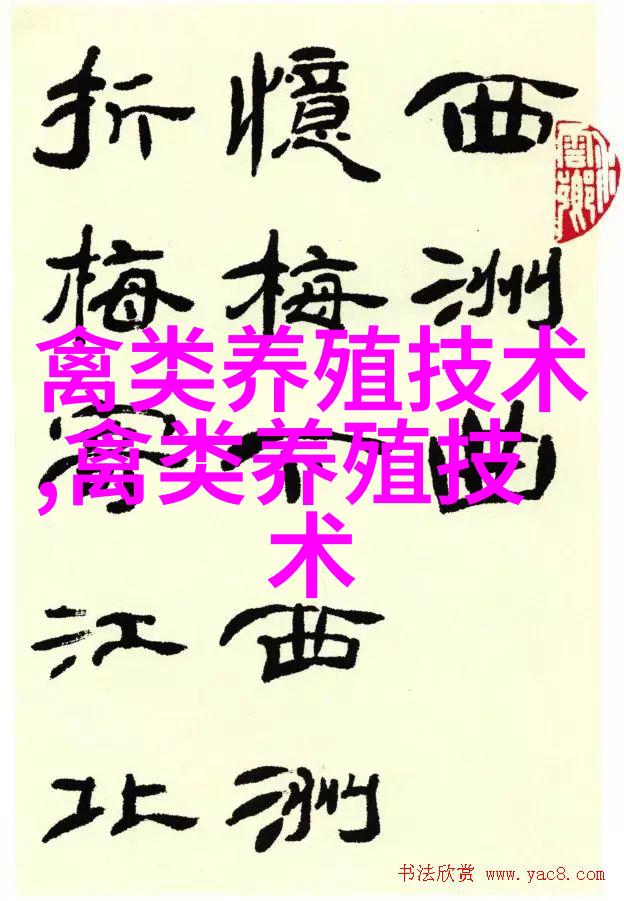 西洲曲
憶梅下西洲
折梅寄江北
禽类养殖技术
,禽类养殖技
术
书法欣赏 www.yac8.com